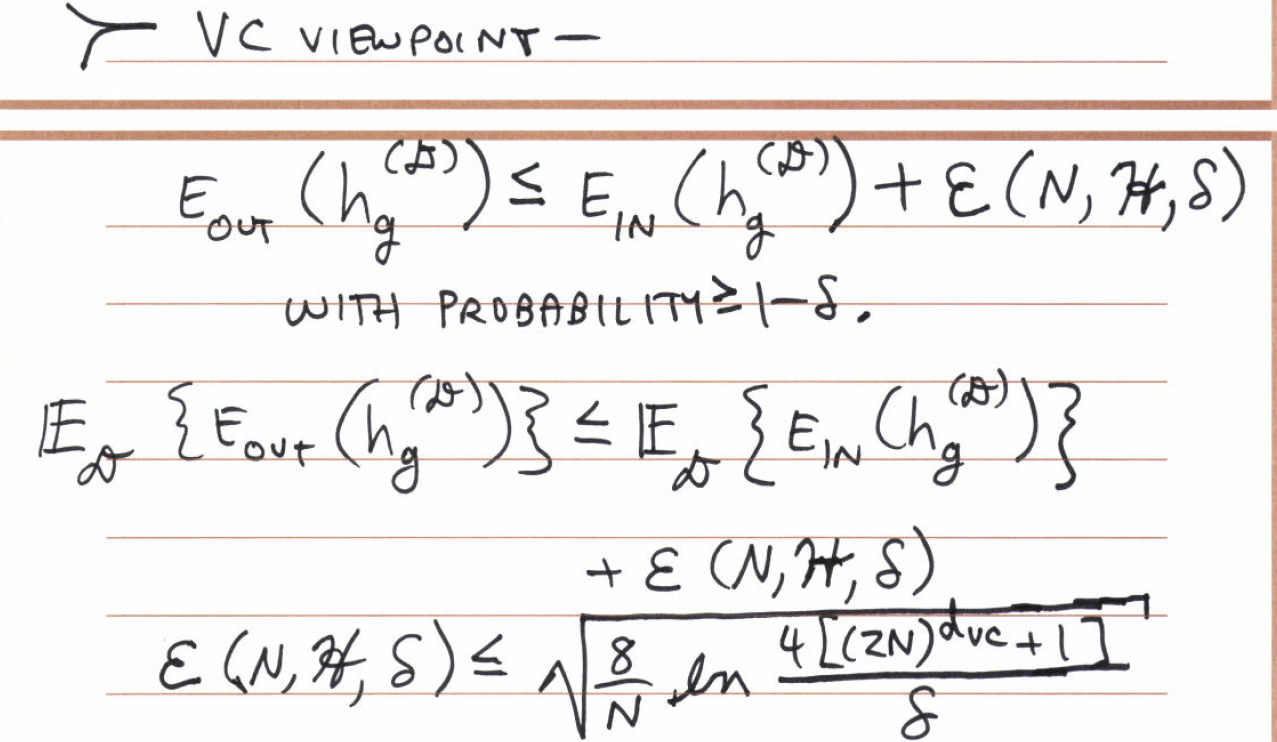 ≻ VC VIEWPOINT –
E_OUT (h_g^(𝒟)) ≤ E_IN (h_g^(𝒟)) + ε(N, ℋ, δ)
WITH PROBABILITY ≥ 1–δ.
𝔼_𝒟 {E_OUT (h_g^(𝒟))} ≤ 𝔼_𝒟 {E_IN (h_g^(𝒟))}
+ ε (N, ℋ, δ)
ε (N, ℋ, δ) ≤ √(8/N ln 4[(2N)^dvc + 1]/δ)